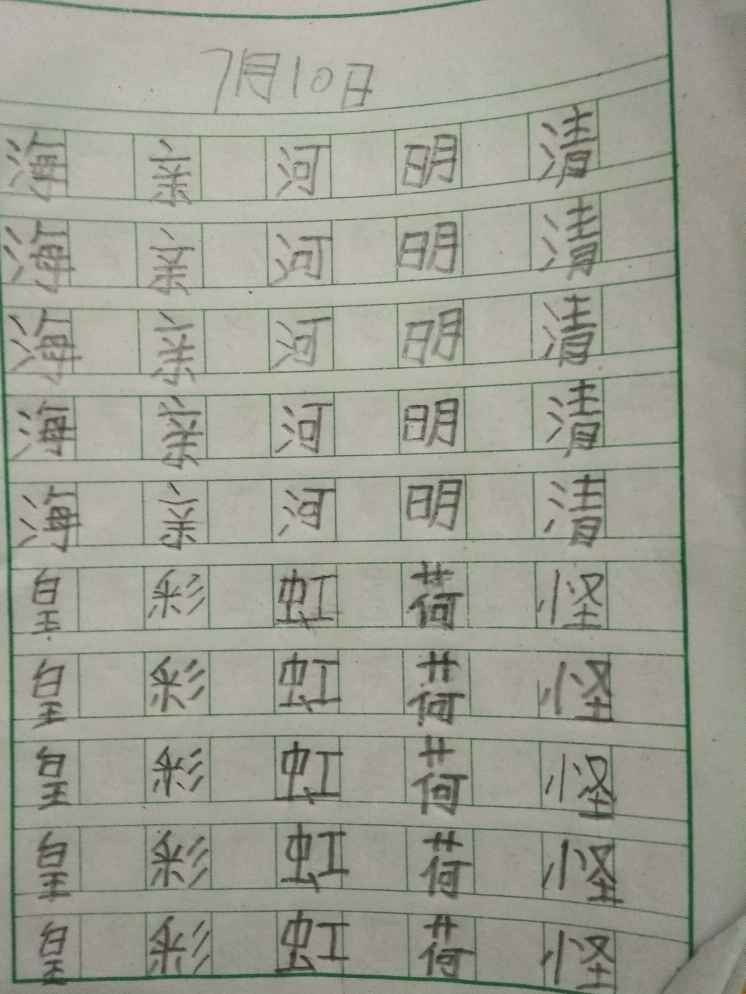 7月10日
河 明 清
河 明 清
河 明 清
河 明 清
河 明 清
皇 彩 虹 荷 怪
皇 彩 虹 荷 怪
皇 彩 虹 荷 怪
皇 彩 虹 荷 怪
皇 彩 虹 荷 怪